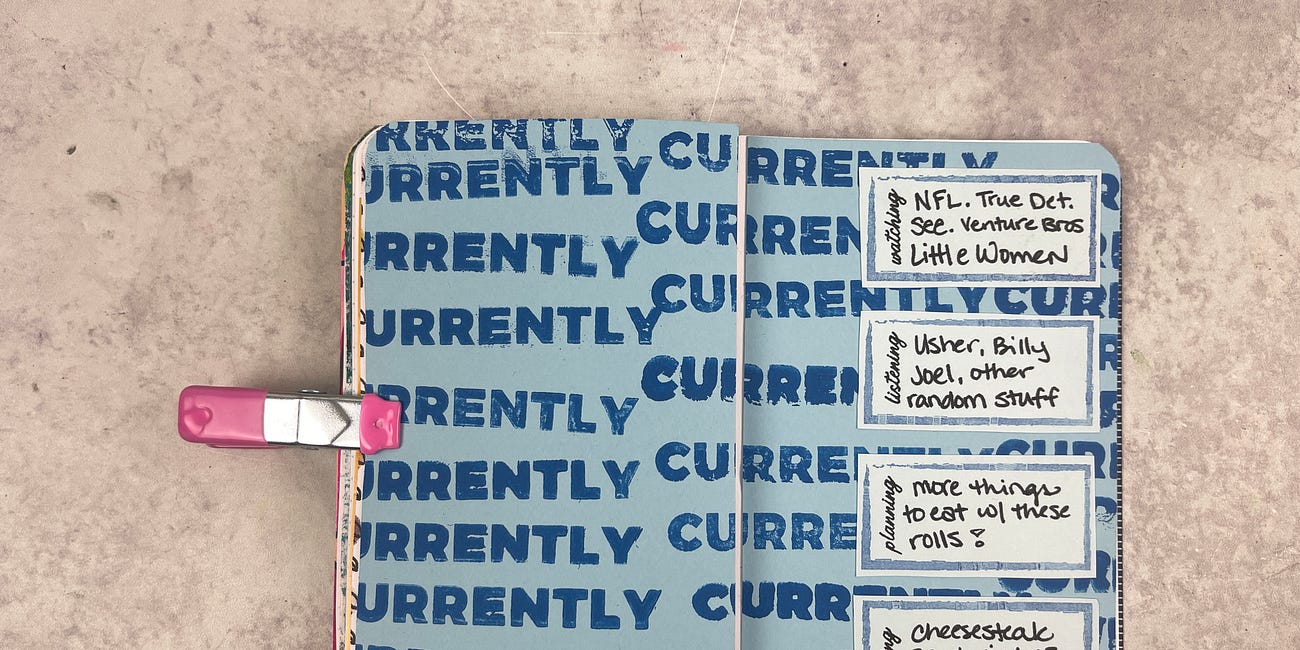 RRENTLY CU
URRENTLY
CUR
URRENTLY
CU
URRENTLY
CURREN
RRENTLY
CU
URRENTLY
CURRE
URRENTLY
URRENTLY CURRENTLY
RRENTLY
RRENTLY
RREN
RRENTLY CURR
RREN
RRENTLY CUR
watching
NFL. True Det.
See. Venture Bros
Little Women
listening
Usher, Billy
Joel, other
random stuff
planning
more things
to eat w/ these
rolls?
cheesesteak